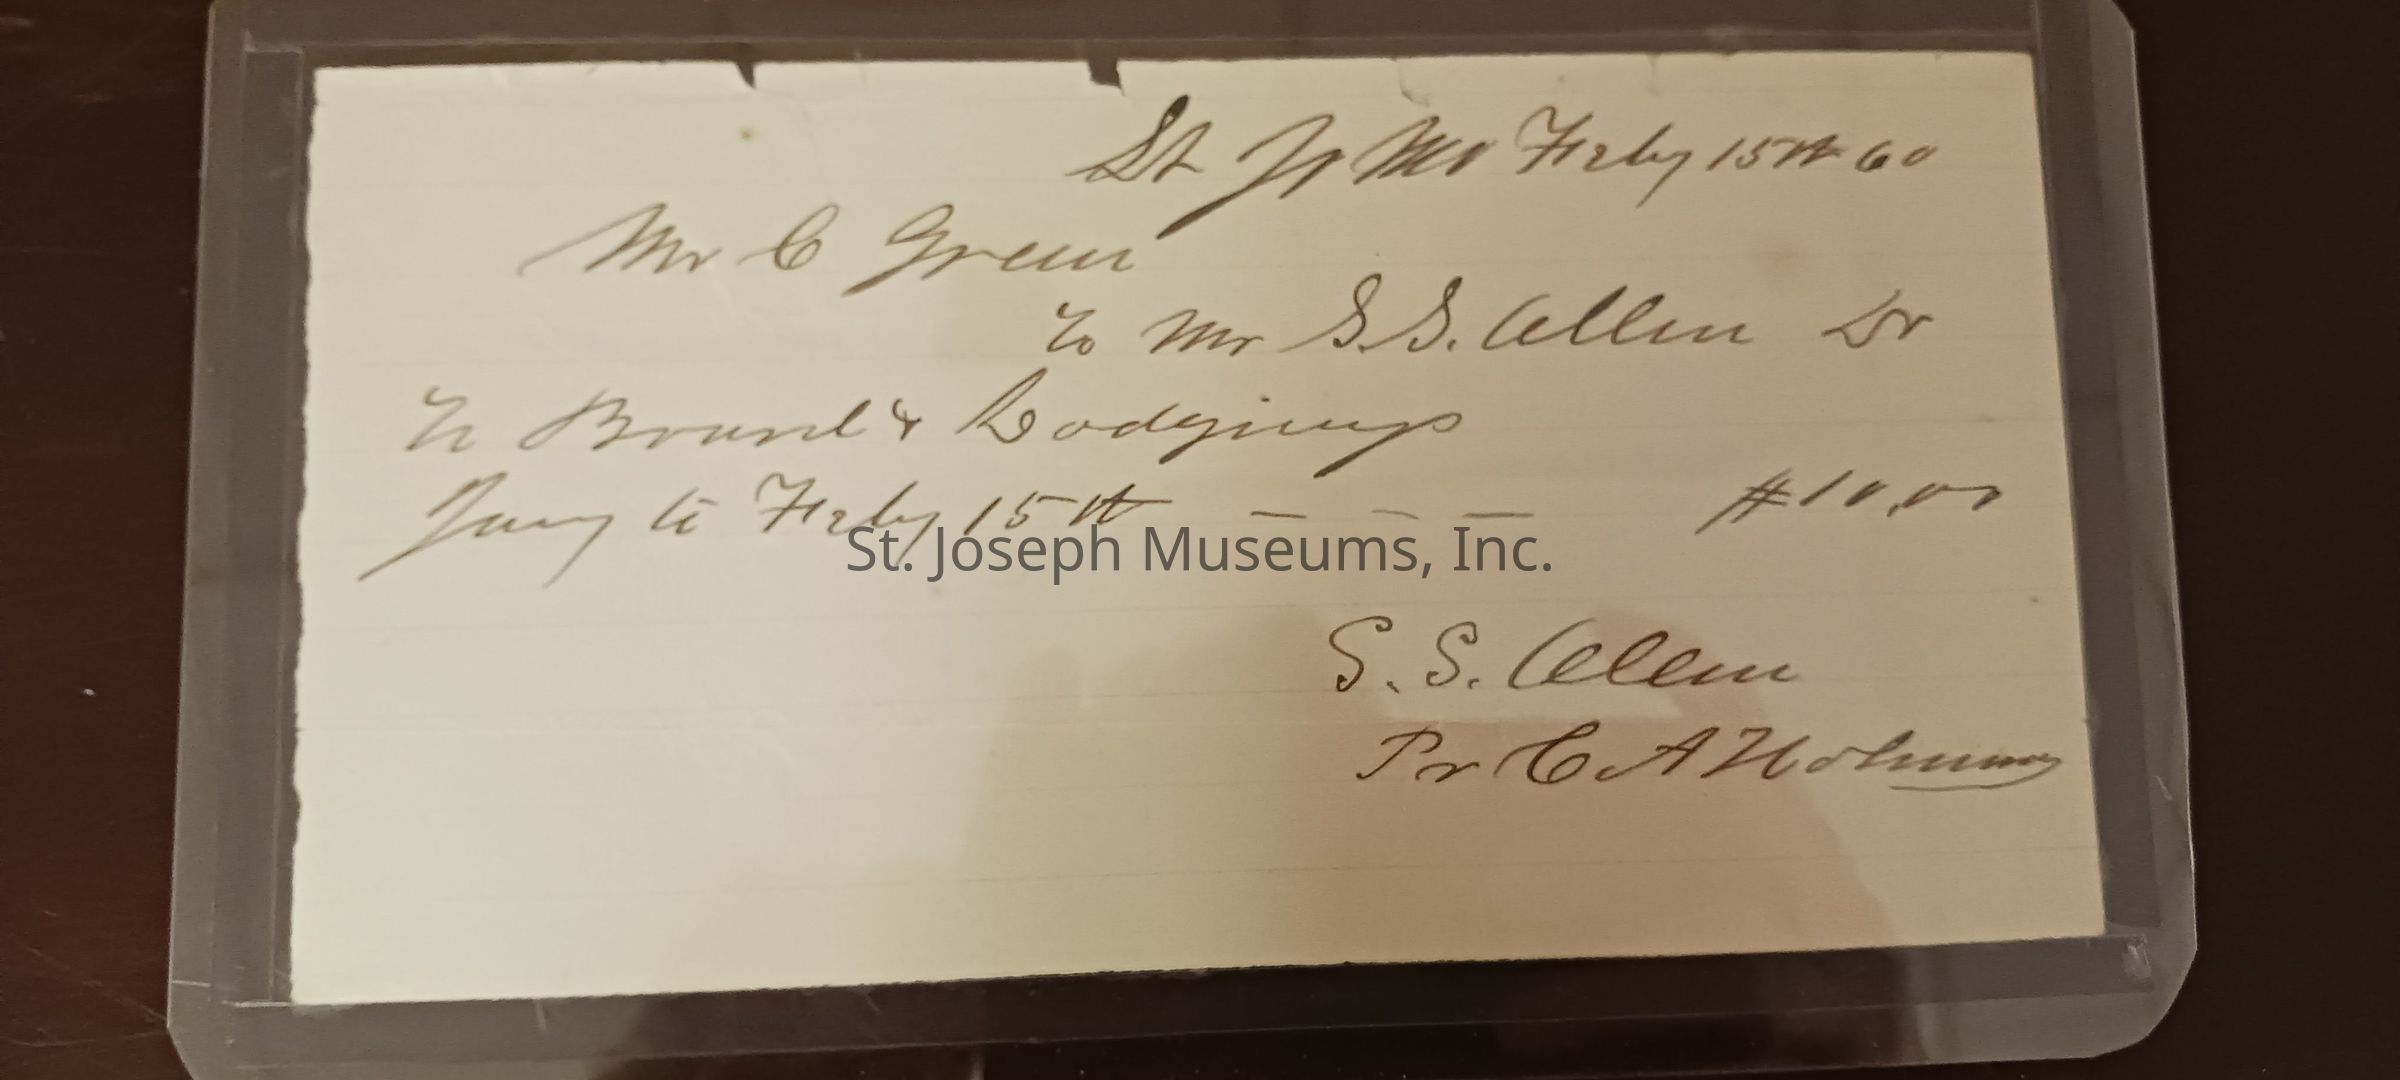 St Jo Mo Feby 15th 60
Mr C Green
To Mr S.S. Allen Dr
To Board & Lodgings
Jany to Feby 15th — — — $10.00
St. Joseph Museums, Inc.
S. S. Allen
Pr C A